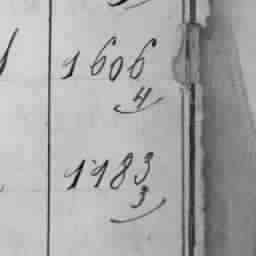 1606
4
1183
3